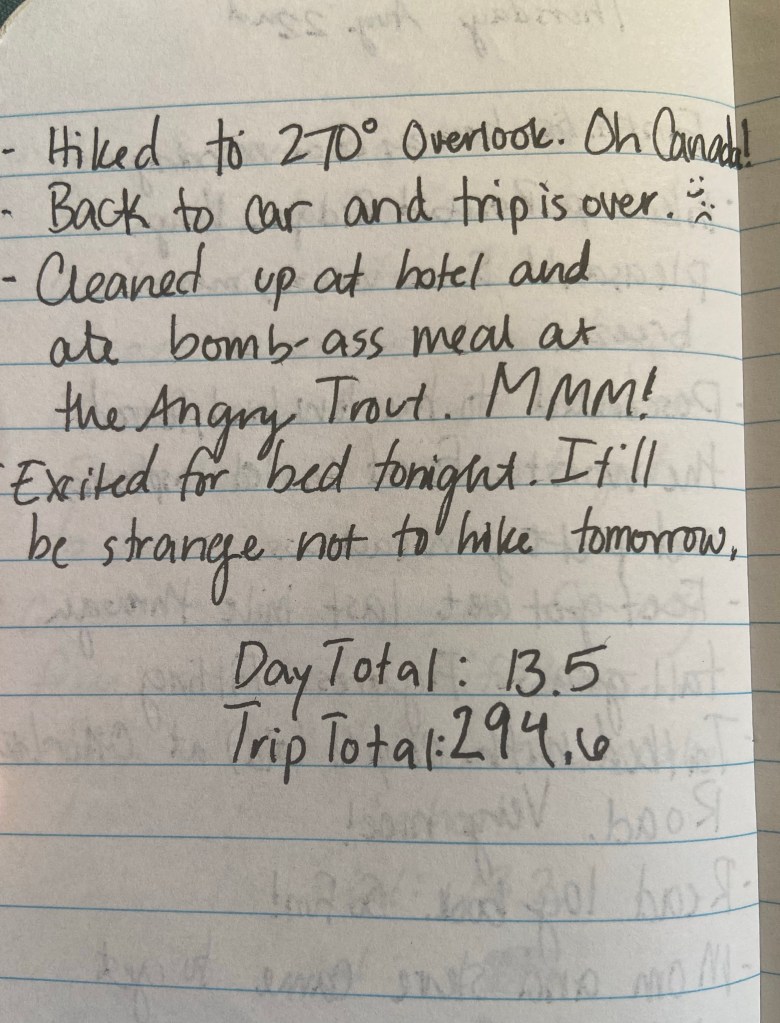 - Hiked to 270° Overlook. Oh Canada!
- Back to car and trip is over. :( 
- Cleaned up at hotel and
ate bomb-ass meal at
the Angry Trout. MMM!
- Excited for bed tonight. It'll
be strange not to hike tomorrow.
Day Total: 13.5
Trip Total: 294.6